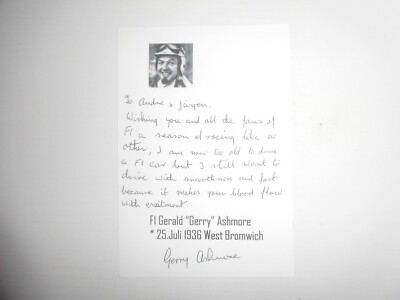 To Andre & Jürgen.
Wishing you and all the fans of
F1 a season of racing like no
other, I am now too old to drive
a F1 car but I still want to
drive with smoothness and fast
because it makes your blood flow
with exitment.
F1 Gerald "Gerry" Ashmore
* 25.Juli 1936 West Bromwich
Gerry Ashmore